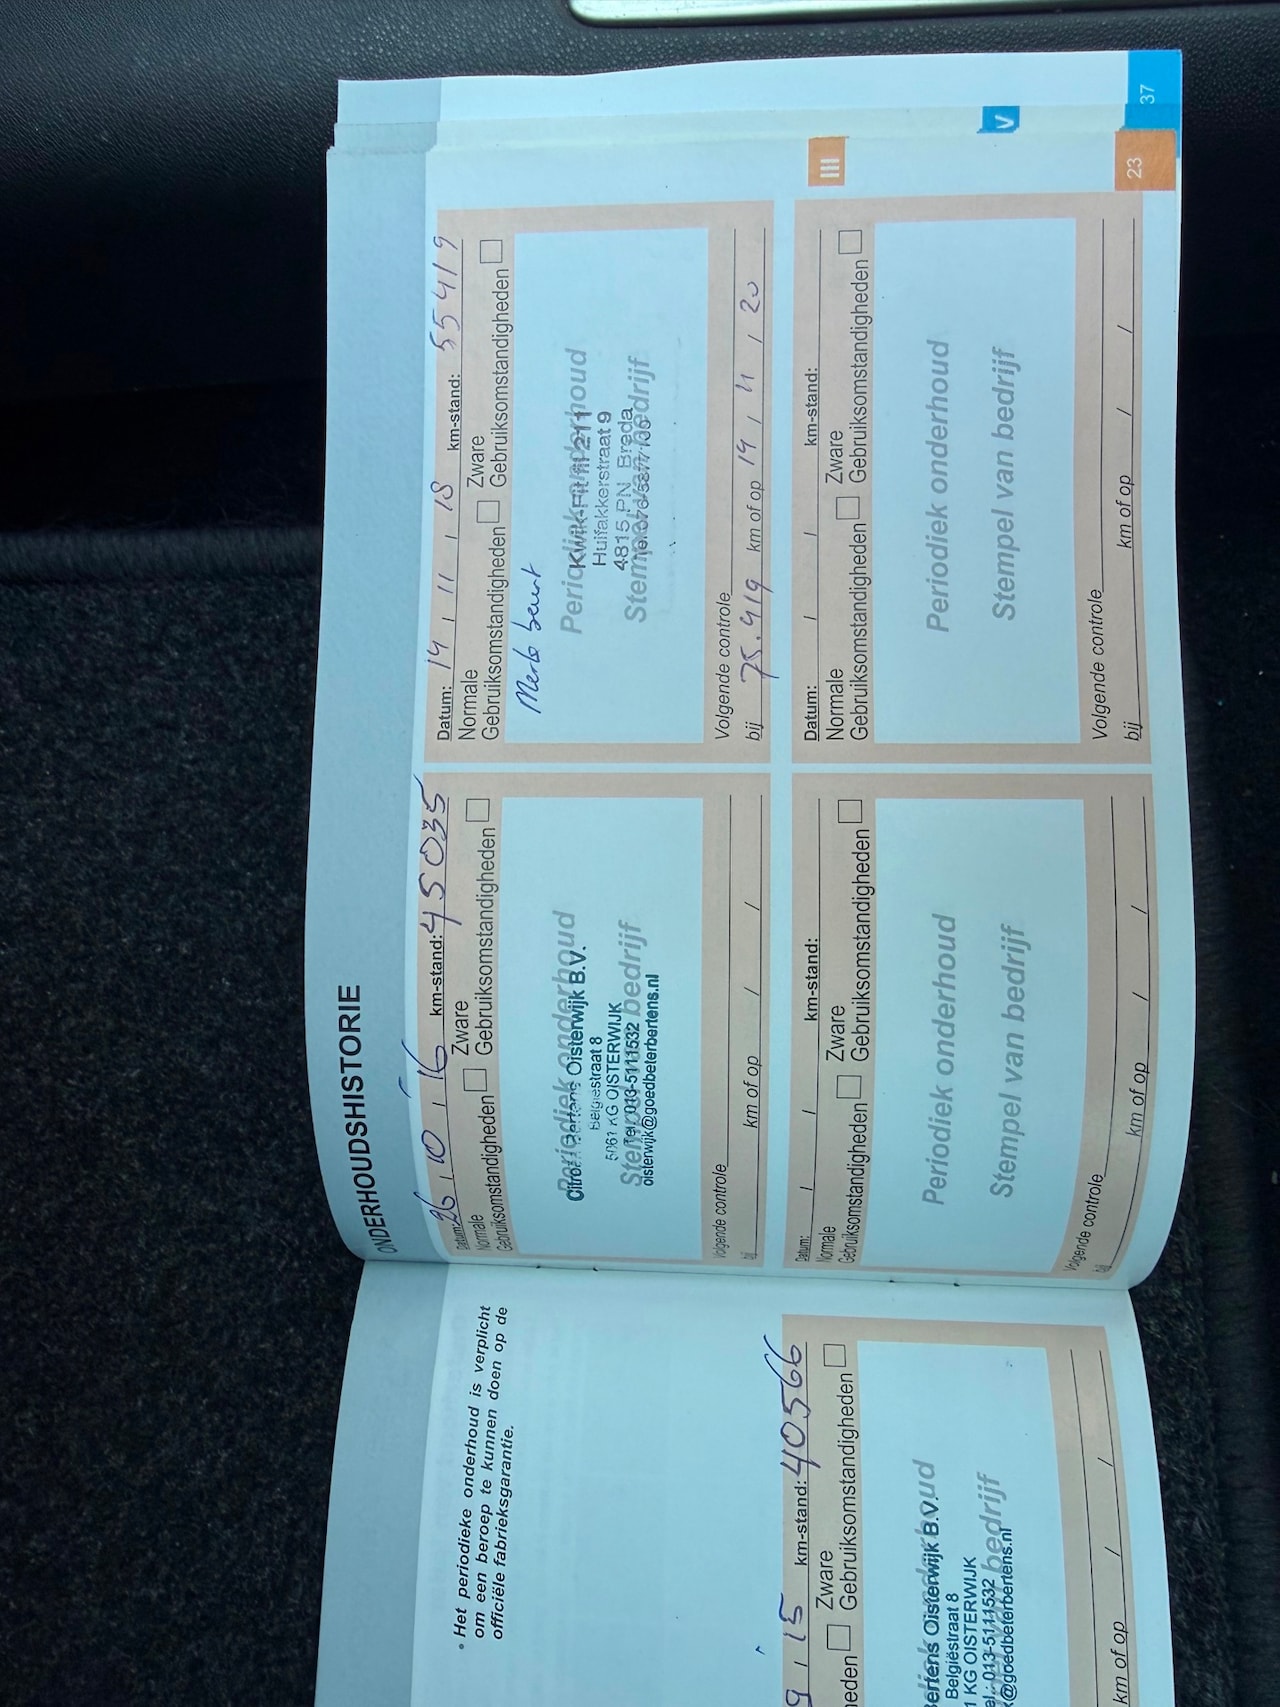 • Het periodieke onderhoud is verplicht
om een beroep te kunnen doen op de
officiële fabrieksgarantie.
9 / 15 km-stand: 40566
Zware
Gebruiksomstandigheden
Bertens Oisterwijk B.V.
Belgiëstraat 8
KG OISTERWIJK
013-5111532
@goedbeterbertens.nl
km of op / /
ONDERHOUDSHISTORIE
Datum: 26 / 10 / 16 km-stand: 45035
Normale Zware
Gebruiksomstandigheden Gebruiksomstandigheden
Periodiek onderhoud
Stempel van bedrijf
Bertens Oisterwijk B.V.
Belgiëstraat 8
5061 KG OISTERWIJK
Tel. 013-5111532
oisterwijk@goedbeterbertens.nl
Volgende controle
bij km of op / /
Datum: 14 / 11 / 18 km-stand: 55419
Normale Zware
Gebruiksomstandigheden Gebruiksomstandigheden
beurt
Periodiek onderhoud
Stempel van bedrijf
Kwik-Fit nr 211
Huifakkerstraat 9
4815 PN Breda
Volgende controle
bij 75.419 km of op 14 / 11 / 20
Datum: / / km-stand:
Normale Zware
Gebruiksomstandigheden Gebruiksomstandigheden
Periodiek onderhoud
Stempel van bedrijf
Volgende controle
bij km of op / /
Datum: / / km-stand:
Normale Zware
Gebruiksomstandigheden Gebruiksomstandigheden
Periodiek onderhoud
Stempel van bedrijf
Volgende controle
bij km of op / /
III
V
23
37